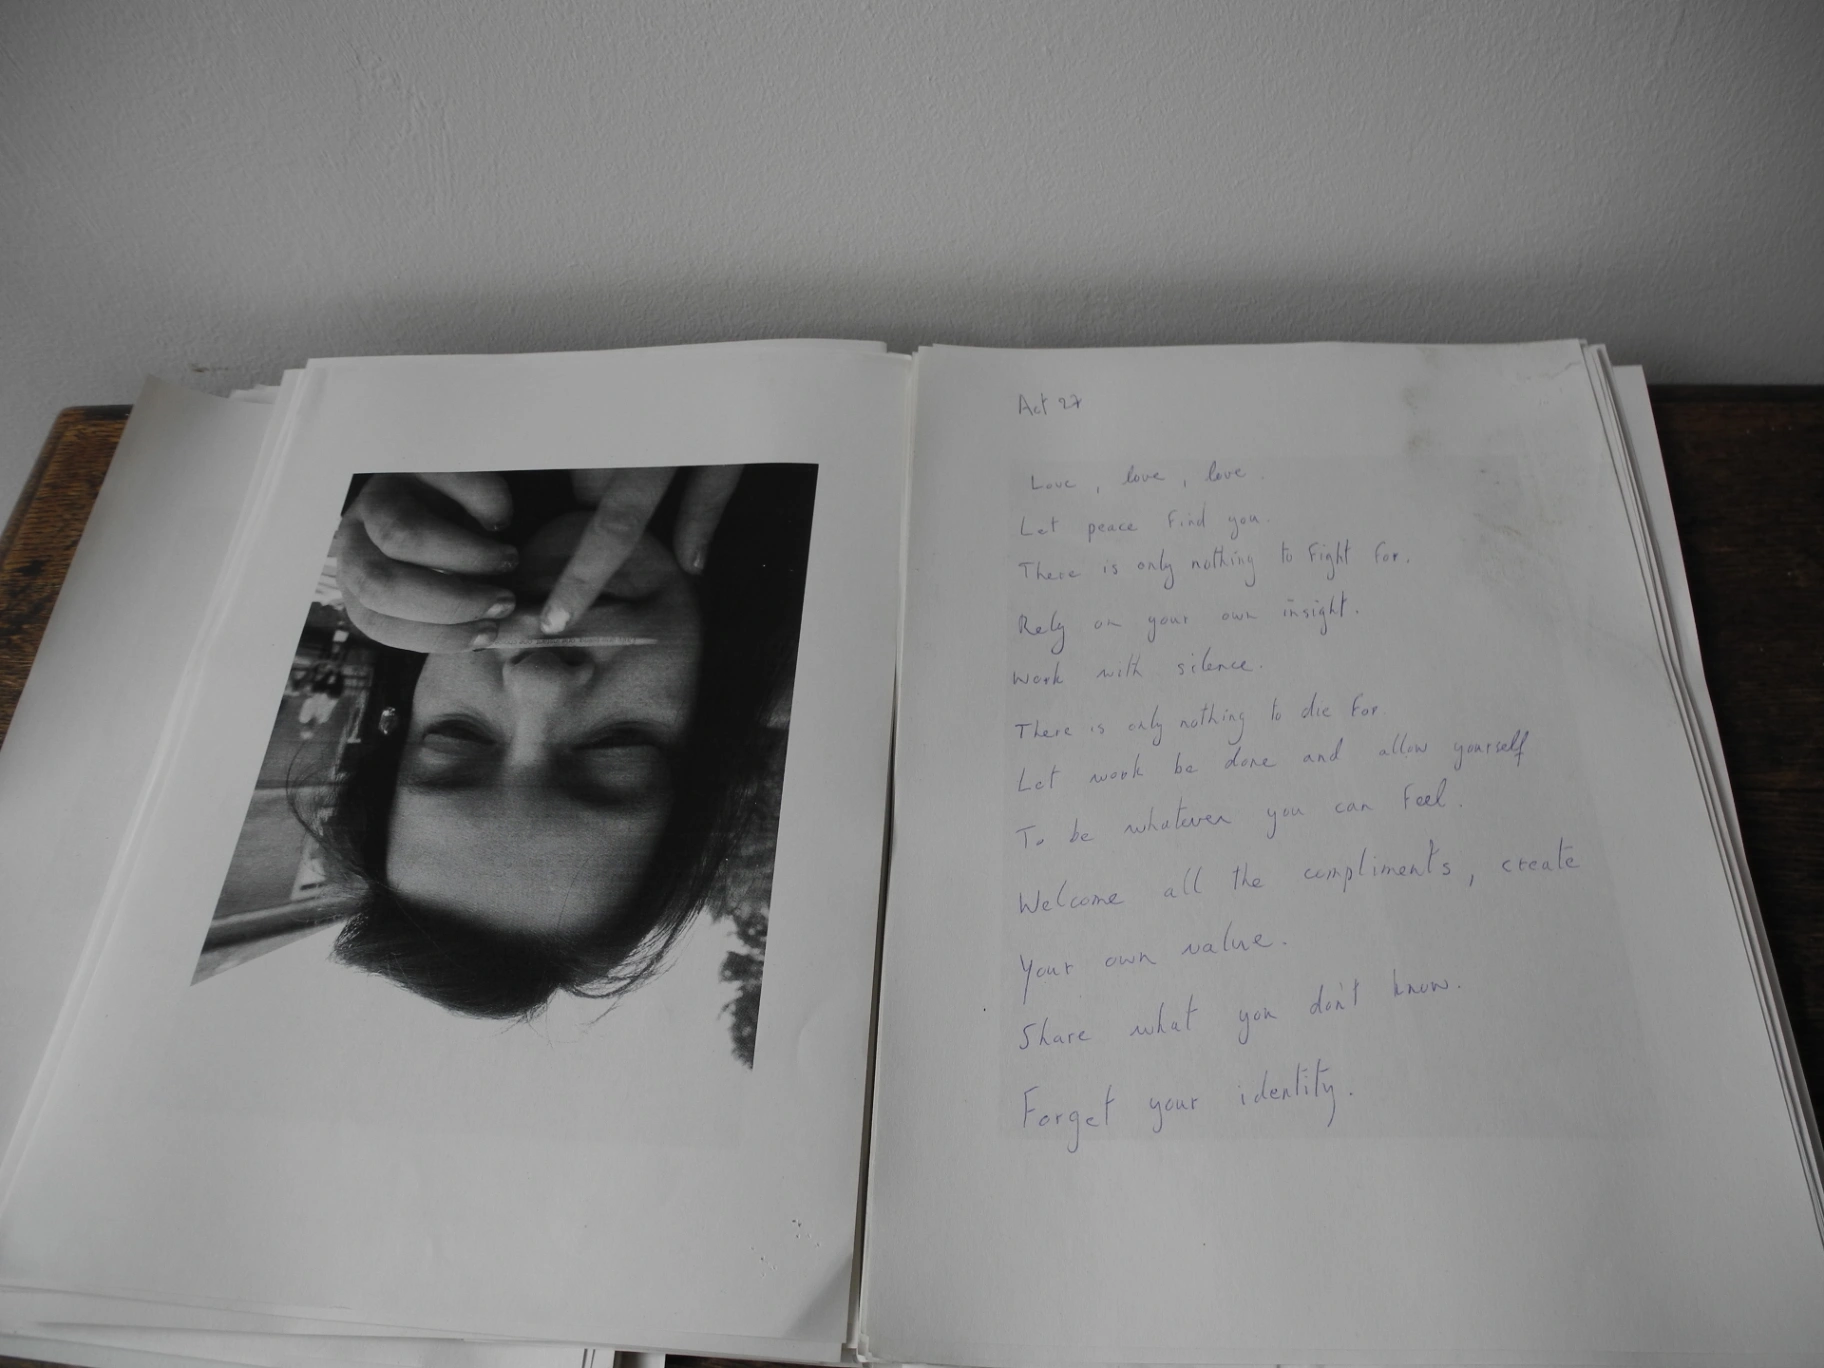 Act 27
Love, love, love.
Let peace find you.
There is only nothing to fight for.
Rely on your own insight.
Work with silence.
There is only nothing to die for.
Let work be done and allow yourself
To be whatever you can feel.
Welcome all the compliments, create
Your own value.
Share what you don't know.
Forget your identity.